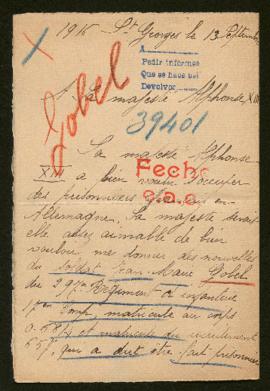 1916 St Georges le 13 Septembre
A
Pedir informes
Que se haga así
Devolver
A Sa majesté Alphonse XIII
Gobel
39401
Sa majesté Alphonse
Fecho
XIII a bien voulu s'occuper
des prisonniers en
Allemagne. Sa majesté serait
elle assez aimable de bien
vouloir me donner des nouvelles
du Soldat Jean Marie Gobel
du 297e Régiment d'infanterie
17e Comp, matricule au corps
et matricule du recrutement
657, qui a dut être fait prisonnier